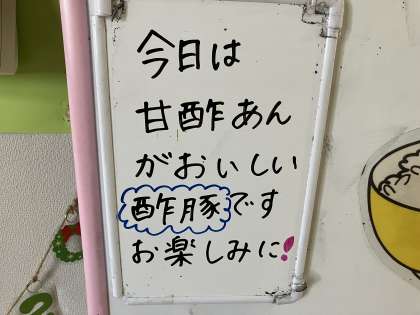 今日は
甘酢あん
がおいしい
酢豚です
お楽しみに!